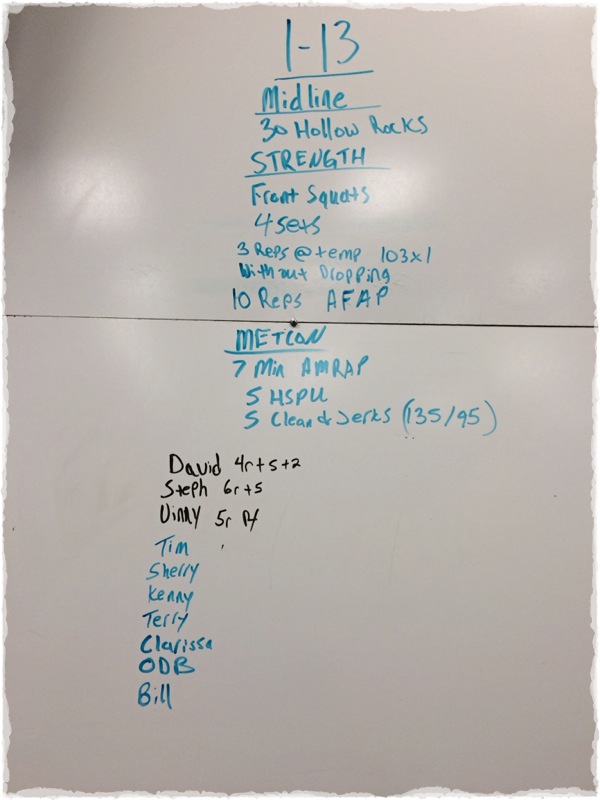 1-13
Midline
30 Hollow Rocks
STRENGTH
Front Squats
4 sets
3 Reps @ temp 103x1
Without Dropping
10 Reps AFAP
METCON
7 Min AMRAP
5 HSPU
5 Clean & Jerks (135/95)
David 4r+5+2
Steph 6r+5
Vinny 5r
Tim
Sherry
Kenny
Terry
Clarissa
ODB
Bill